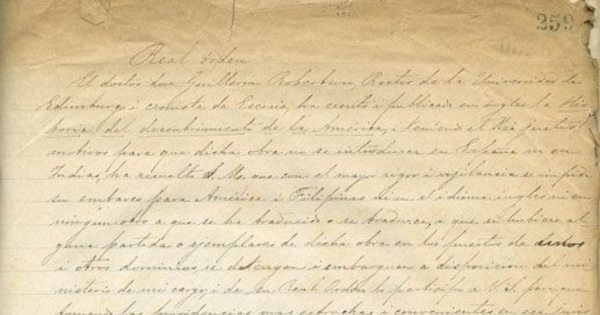 259
Real orden
El doctor don Guillermo Robertson, Rector de la Universidad de
Edimburgo i cronista de Escocia, ha escrito i publicado en ingles la His
toria del descubrimiento de la América, i teniendo el Rei justos
motivos para que dicha obra no se introduzca en España ni en
Indias, ha resuelto S. M. que con el mayor rigor i vijilancia se impida
su embarco para América i Filipinas ni en el idioma ingles ni en
ningun otro a que se ha traducido o se traduzca, i que si hubiese al
guna partida o ejemplares de dicha obra en los puertos de unos
i otros dominios, se detengan i embarguen a disposicion del mi
nisterio de mi cargo; i de su Real Orden lo participo a V. S. para que
tomando las providencias mas estrechas i convenientes en esa juris